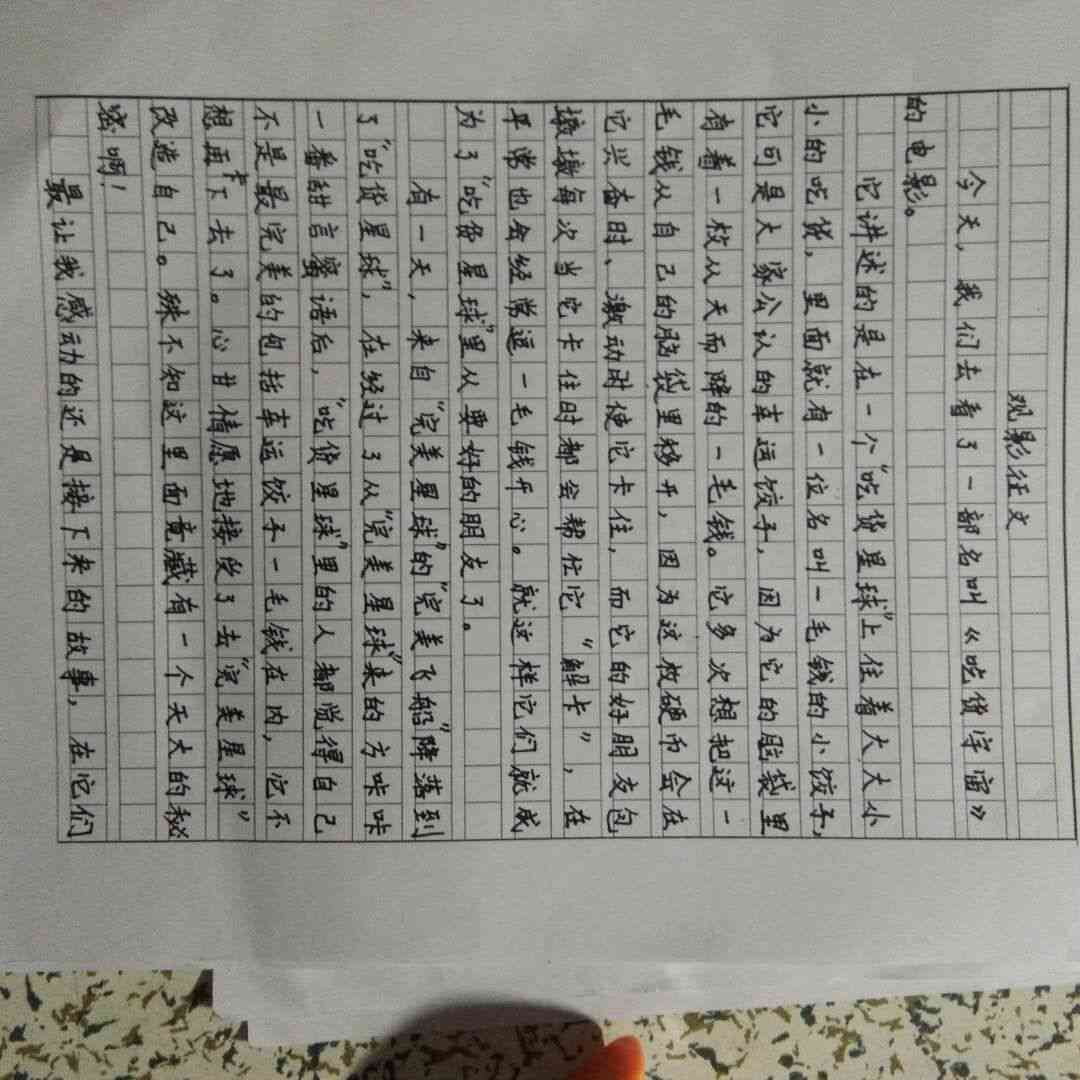 观影征文
今天，我们去看了一部名叫《吃货宇宙》
的电影。
它讲述的是在一个“吃货星球”上住着大大小
小的吃货，里面就有一位名叫一毛钱的小饺子，
它可是大家公认的车运饺子，因为它的脑袋里
有着一枚从天而降的一毛钱。它多次想把这一
毛钱从自己的脑袋里移开，因为这枚硬币会在
它兴奋时、激动时使它卡住，而它的好朋友包
墩墩每次当它卡住时都会帮忙它“解卡”，在
平常也会经常逗一毛钱开心。就这样它们就成
为了“吃货星球”里从要好的朋友了。
有一天，来自“完美星球”的“完美飞船”降落到
了“吃货星球”，在经过了从“完美星球”来的方咔咔
一番甜言蜜语后，“吃货星球”里的人都觉得自己
不是最完美的包括车运饺子一毛钱在内，它不
想再卡下去了。心甘情愿地接受了去“完美星球”
改造自己。殊不知这里面竟藏有一个天大的秘
密啊！
最让我感动的还是接下来的故事，在它们